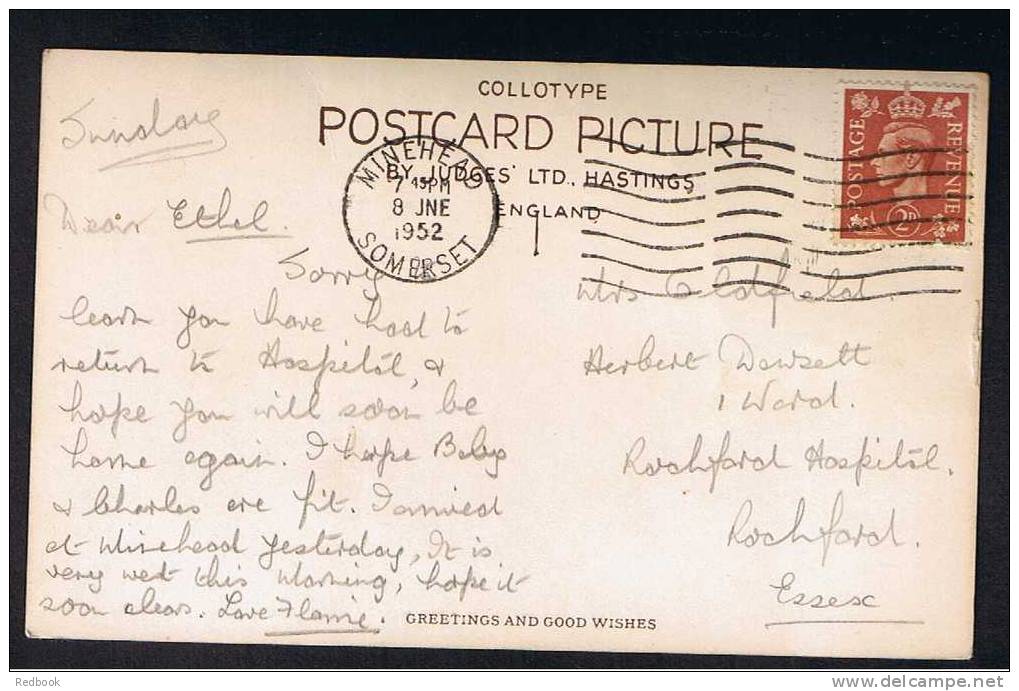 COLLOTYPE
POSTCARD PICTURE
BY JUDGES' LTD., HASTINGS
ENGLAND
MINEHEAD
7 45 PM
8 JNE
1952
SOMERSET
POSTAGE
REVENUE
2D
Sunday
Dear Ethel.
Sorry
learn you have had to
return to Hospital, &
hope you will soon be
home again. I hope Baby
& Charles are fit. I arrived
at Minehead yesterday, It is
very wet this morning, hope it
soon clears. Love
Mrs Oldfield.
Herbert Dowsett
1 Ward.
Rochford Hospital.
Rochford.
Essex
GREETINGS AND GOOD WISHES
Redbook
delcampe.net